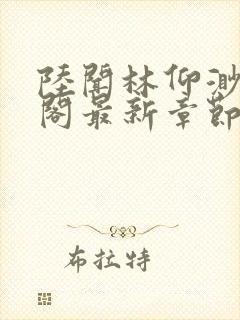 陸闻林仰渺
阁最新章節
布拉特